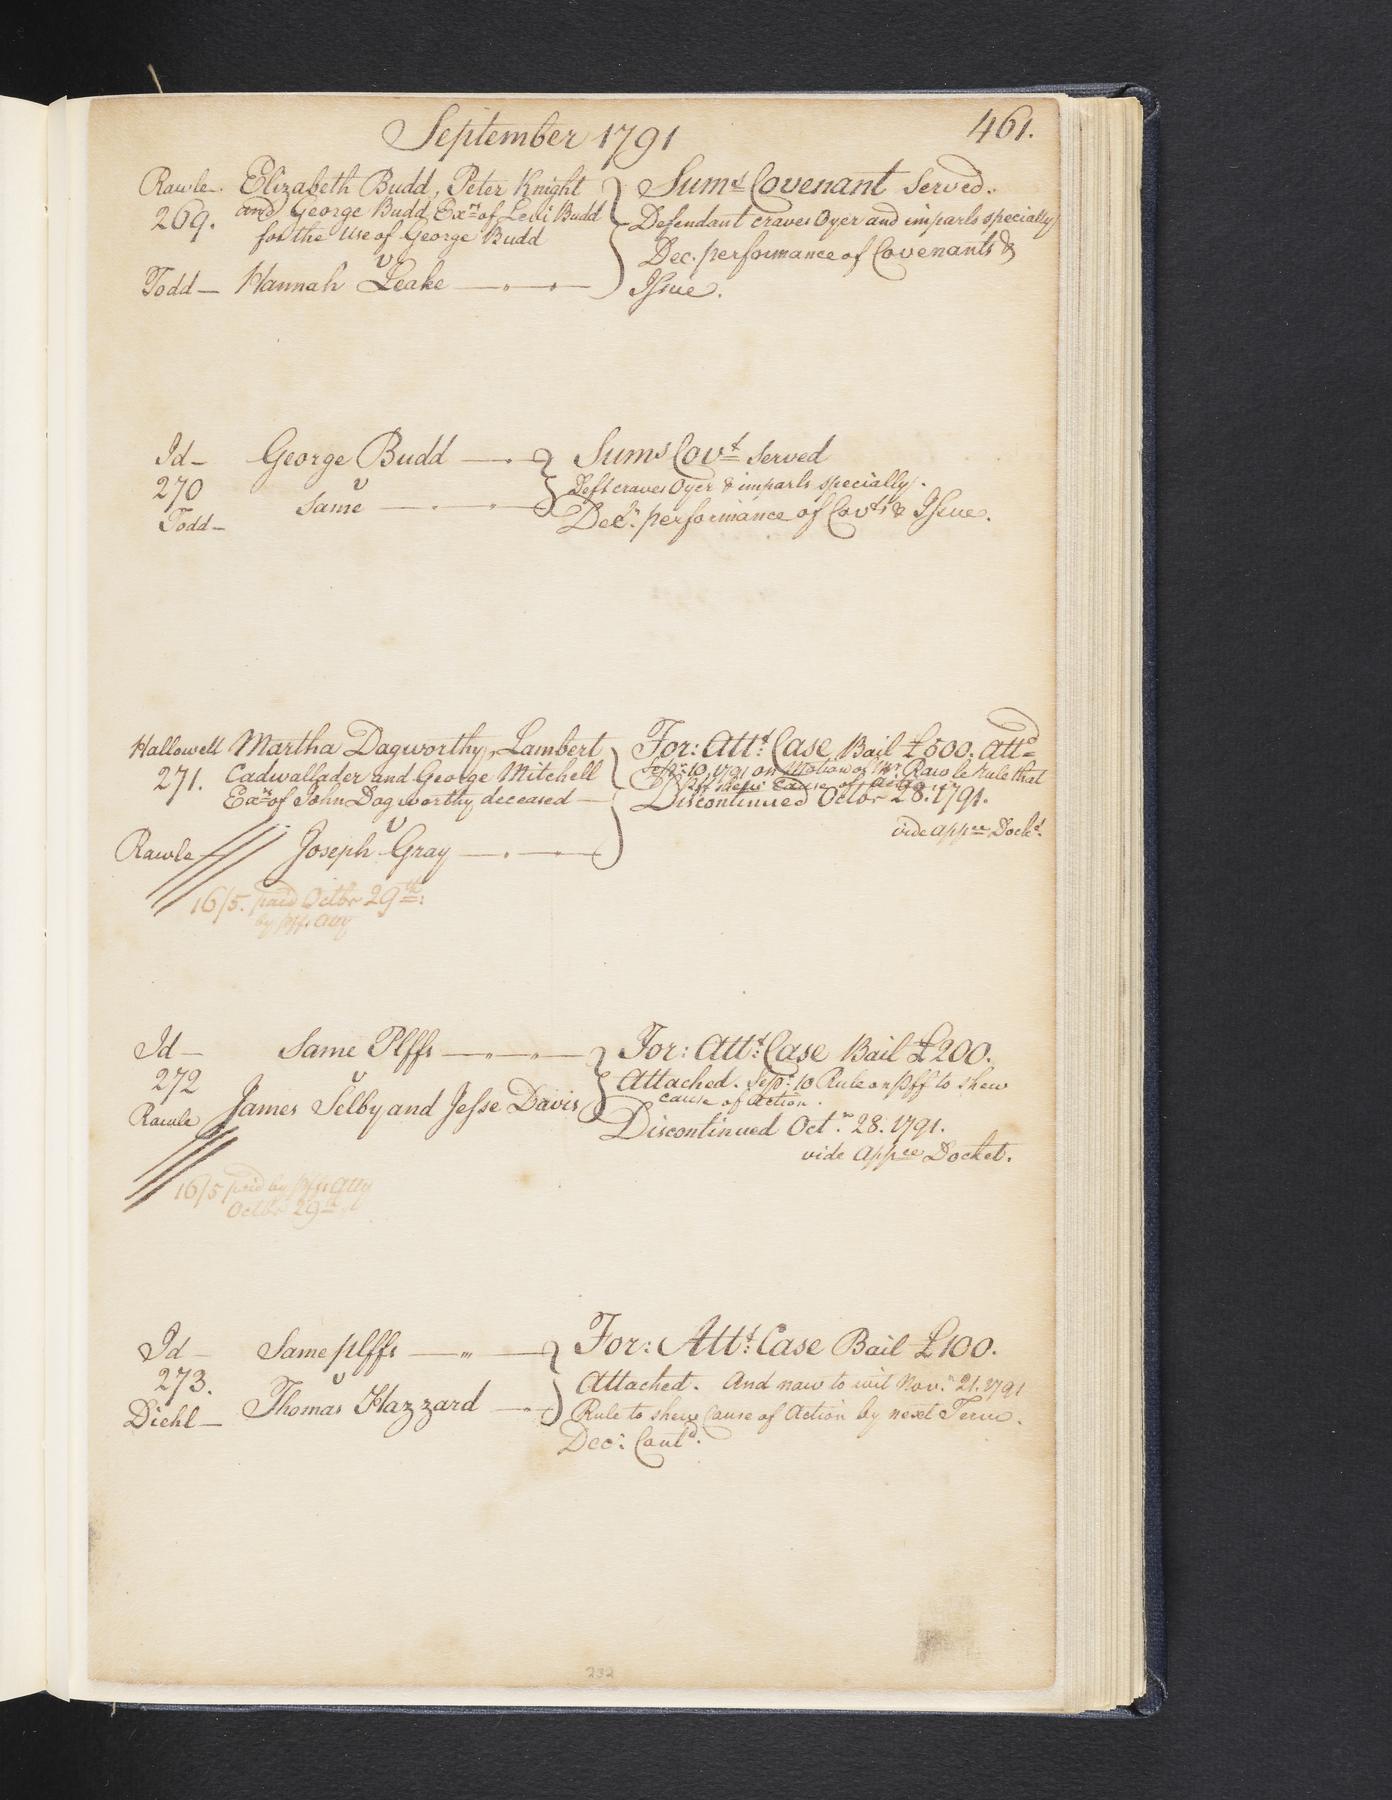 September 1791
461.
Rawle. Elizabeth Budd, Peter Knight
269. and George Budd, Exrs of Levi Budd
for the Use of George Budd
v
Todd— Hannah Leake
Sums Covenant Served.
Defendant craves Oyer and imparls specially
Dec. performance of Covenants &
Issue.
Id— George Budd
270 v
Same
Todd—
Sums Covt Served
Deft craves Oyer & imparls specially.
Decn. performance of Covts & Issue.
Hallowell Martha Dagworthy, Lambert
271. Cadwallader and George Mitchell
Exrs of John Dagworthy deceased—
v
Rawle— Joseph Gray
16/5. paid Octbr 29th:
by plffs Atty
For: Attt: Case Bail £500. Attd
Sepr. 10. 1791 on Motion of Mr. Rawle Rule that
Plff shew Cause of Action
Discontinued Octbr 28. 1791.
vide appce Dockt.
Id— Same Plffs
272 v
Rawle James Selby and Jesse Davis
16/5 paid by plffs Atty
Octbr 29th
For: Attt: Case Bail £200.
Attached. Sepr. 10 Rule on plff to shew
cause of Action.
Discontinued Octr. 28. 1791.
vide appce Docket.
Id— Same plffs
273. v
Diehl— Thomas Hazzard
For: Attt: Case Bail £100.
Attached. And now to wit Novr. 21. 1791
Rule to shew Cause of Action by next Term.
Decn: Contd.
232